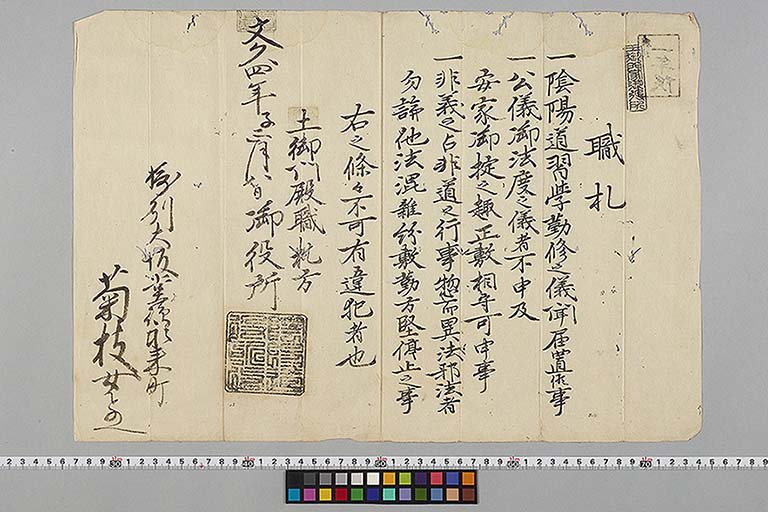 職札
一陰陽道習学勤修之儀聞届置候事
一公儀御法度之儀者不申及
安家御掟之趣正敷相守可申事
一非義之占非道之行事惣而異法邪法者
勿論他法混雑紛敷勤方堅停止之事
右之條々不可有違犯者也
土御門殿職軄方
文久四年子二月
御役所
大坂
町
菊枝